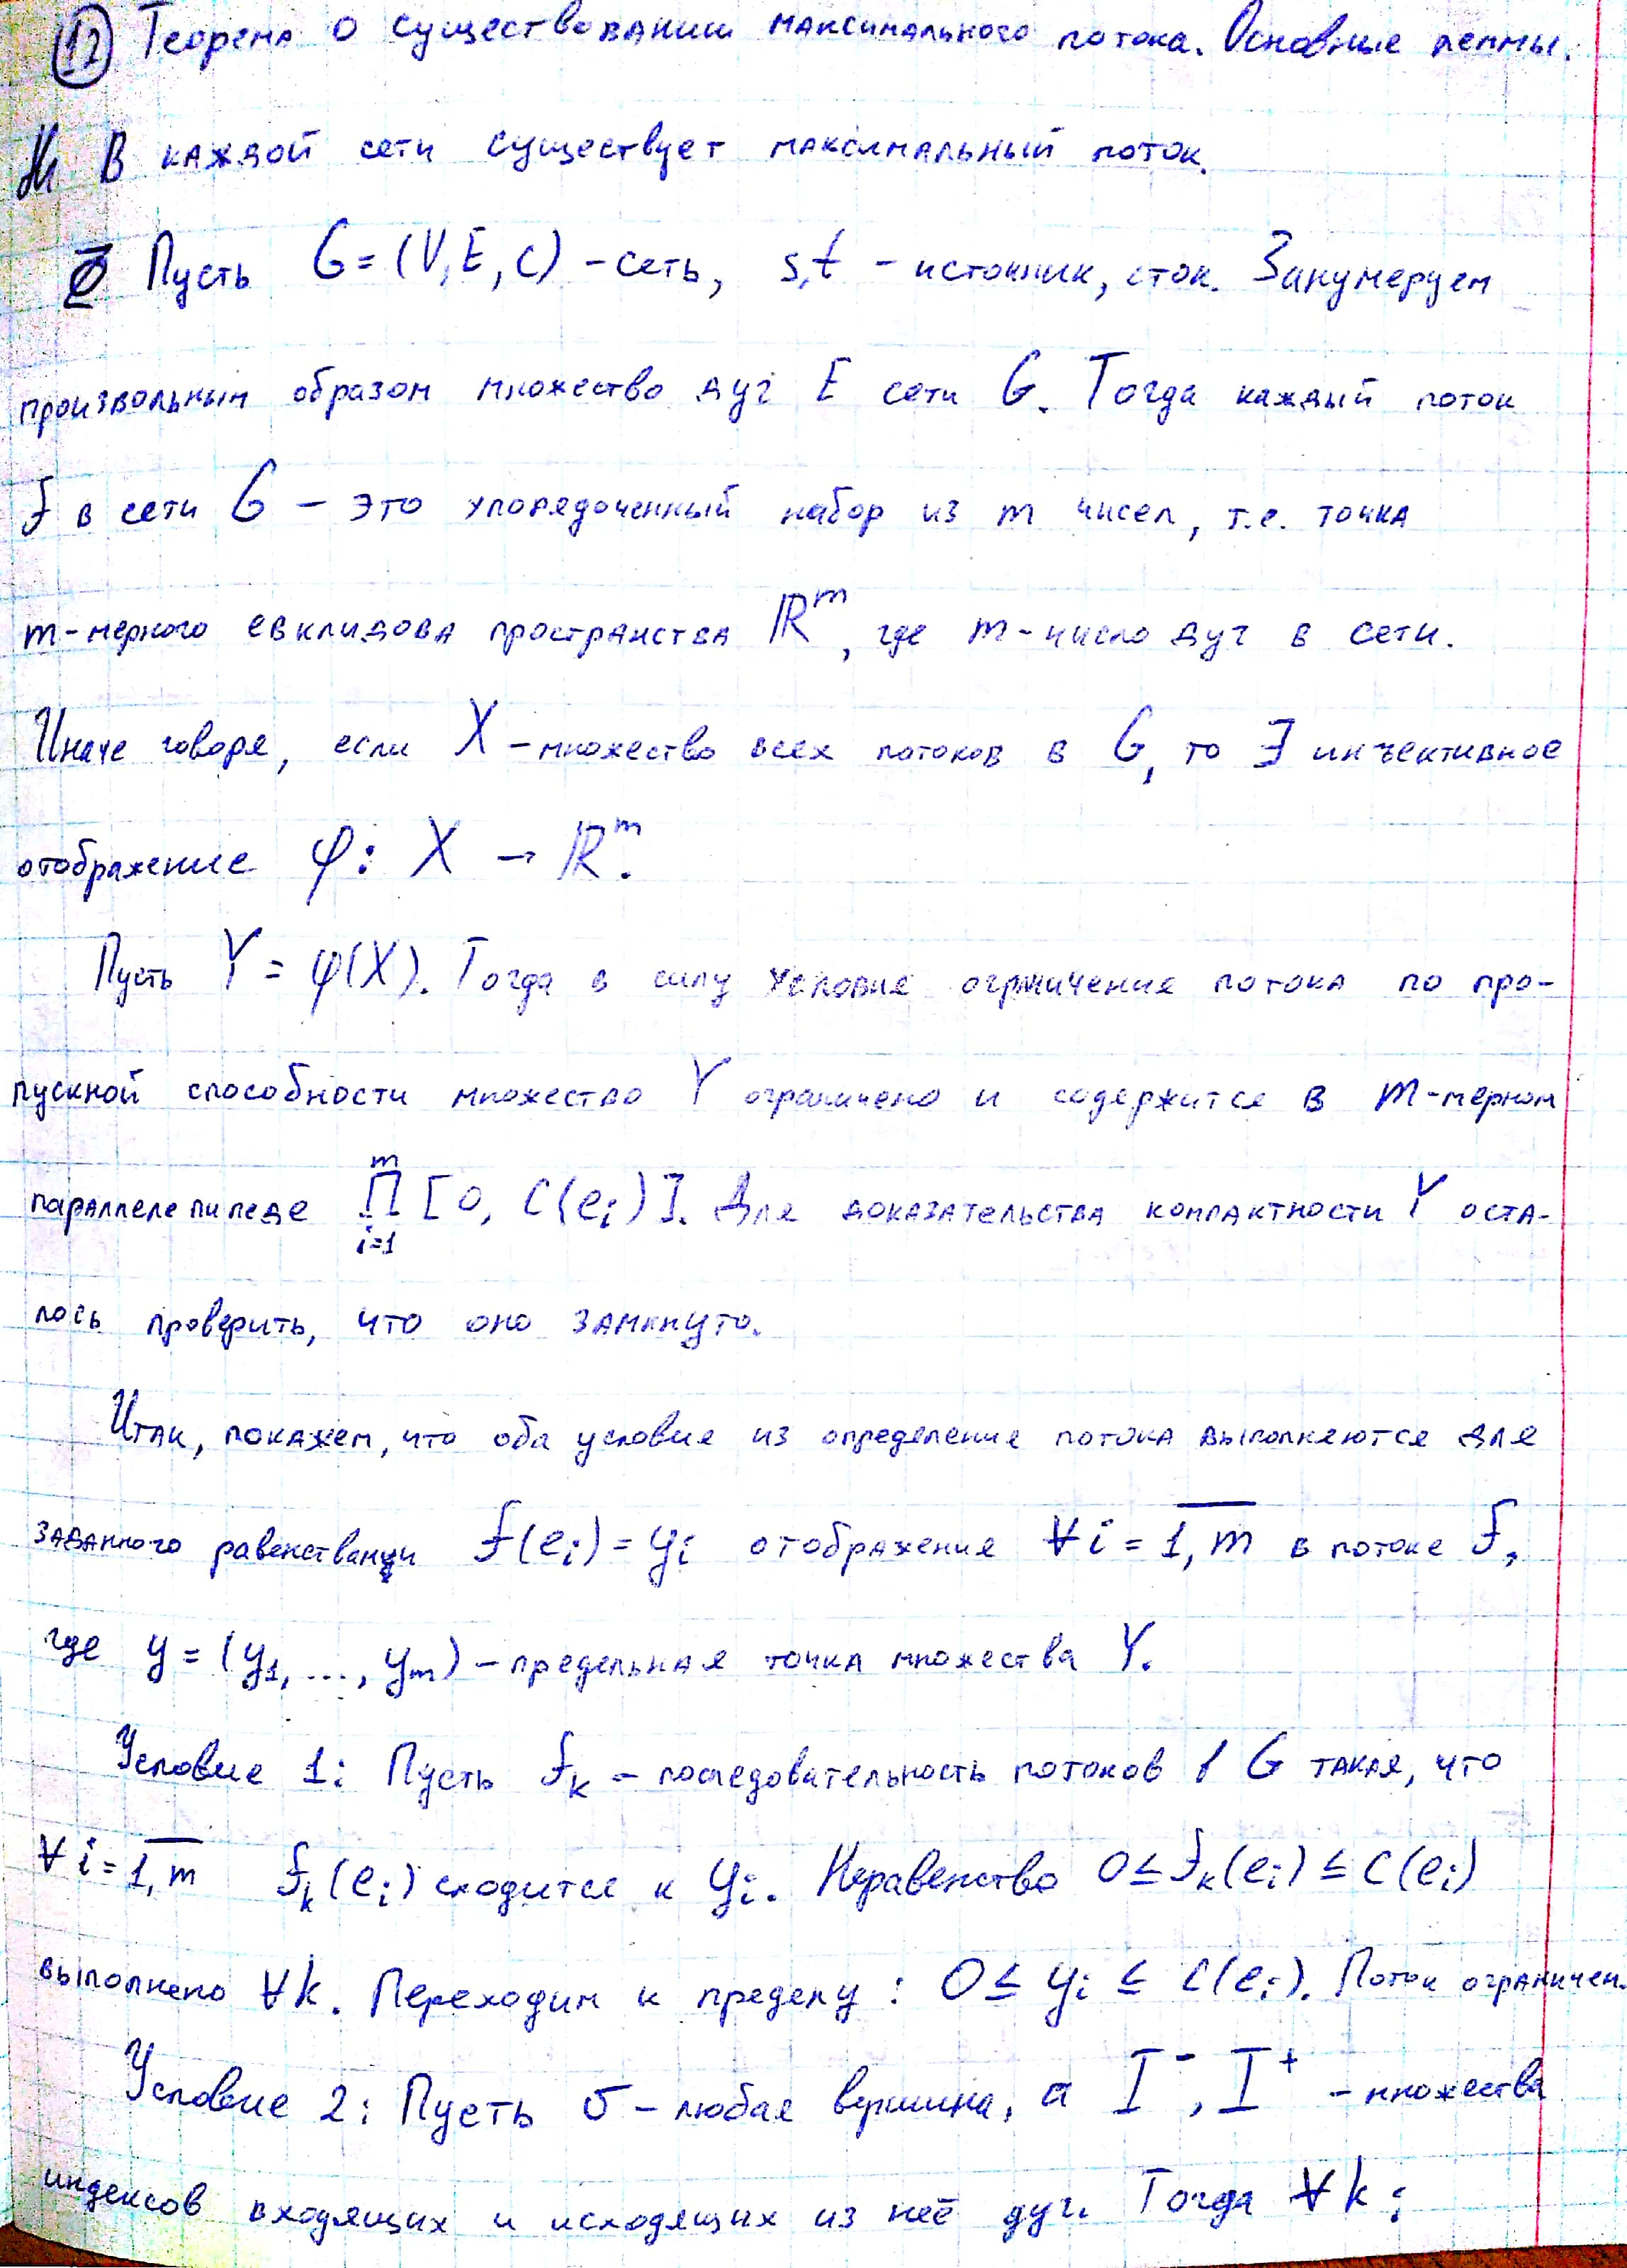 12 Теорема о существовании максимального потока. Основные леммы.
В каждой сети существует максимальный поток.
Пусть G = (V, E, c) - сеть, s,t - источник, сток. Занумеруем
произвольным образом множество дуг E сети G. Тогда каждый поток
f в сети G - это упорядоченный набор из m чисел, т.е. точка
m-мерного евклидова пространства ℝ^m, где m-число дуг в сети.
Иначе говоря, если X - множество всех потоков в G, то ∃ инъективное
отображение φ: X → ℝ^m.
Пусть Y = φ(X). Тогда в силу условия ограничения потока по про-
пускной способности множество Y ограничено и содержится в m-мерном
параллелепипеде ∏_{i=1}^{m} [0, C(e_i)]. Для доказательства компактности Y оста-
лось проверить, что оно замкнуто.
Итак, покажем, что оба условия из определения потока выполняются для
заданного равенствами f(e_i) = y_i отображения ∀ i = 1,m в потоке f,
где y = (y_1, ..., y_m) - предельная точка множества Y.
Условие 1: Пусть f_k - последовательность потоков в G такая, что
∀ i = 1,m f_k(e_i) сходится к y_i. Неравенство 0 ≤ f_k(e_i) ≤ C(e_i)
выполнено ∀k. Переходим к пределу: 0 ≤ y_i ≤ C(e_i). Поток ограничен.
Условие 2: Пусть σ - любая вершина, а I^-, I^+ - множества
индексов входящих и исходящих из неё дуг. Тогда ∀k: